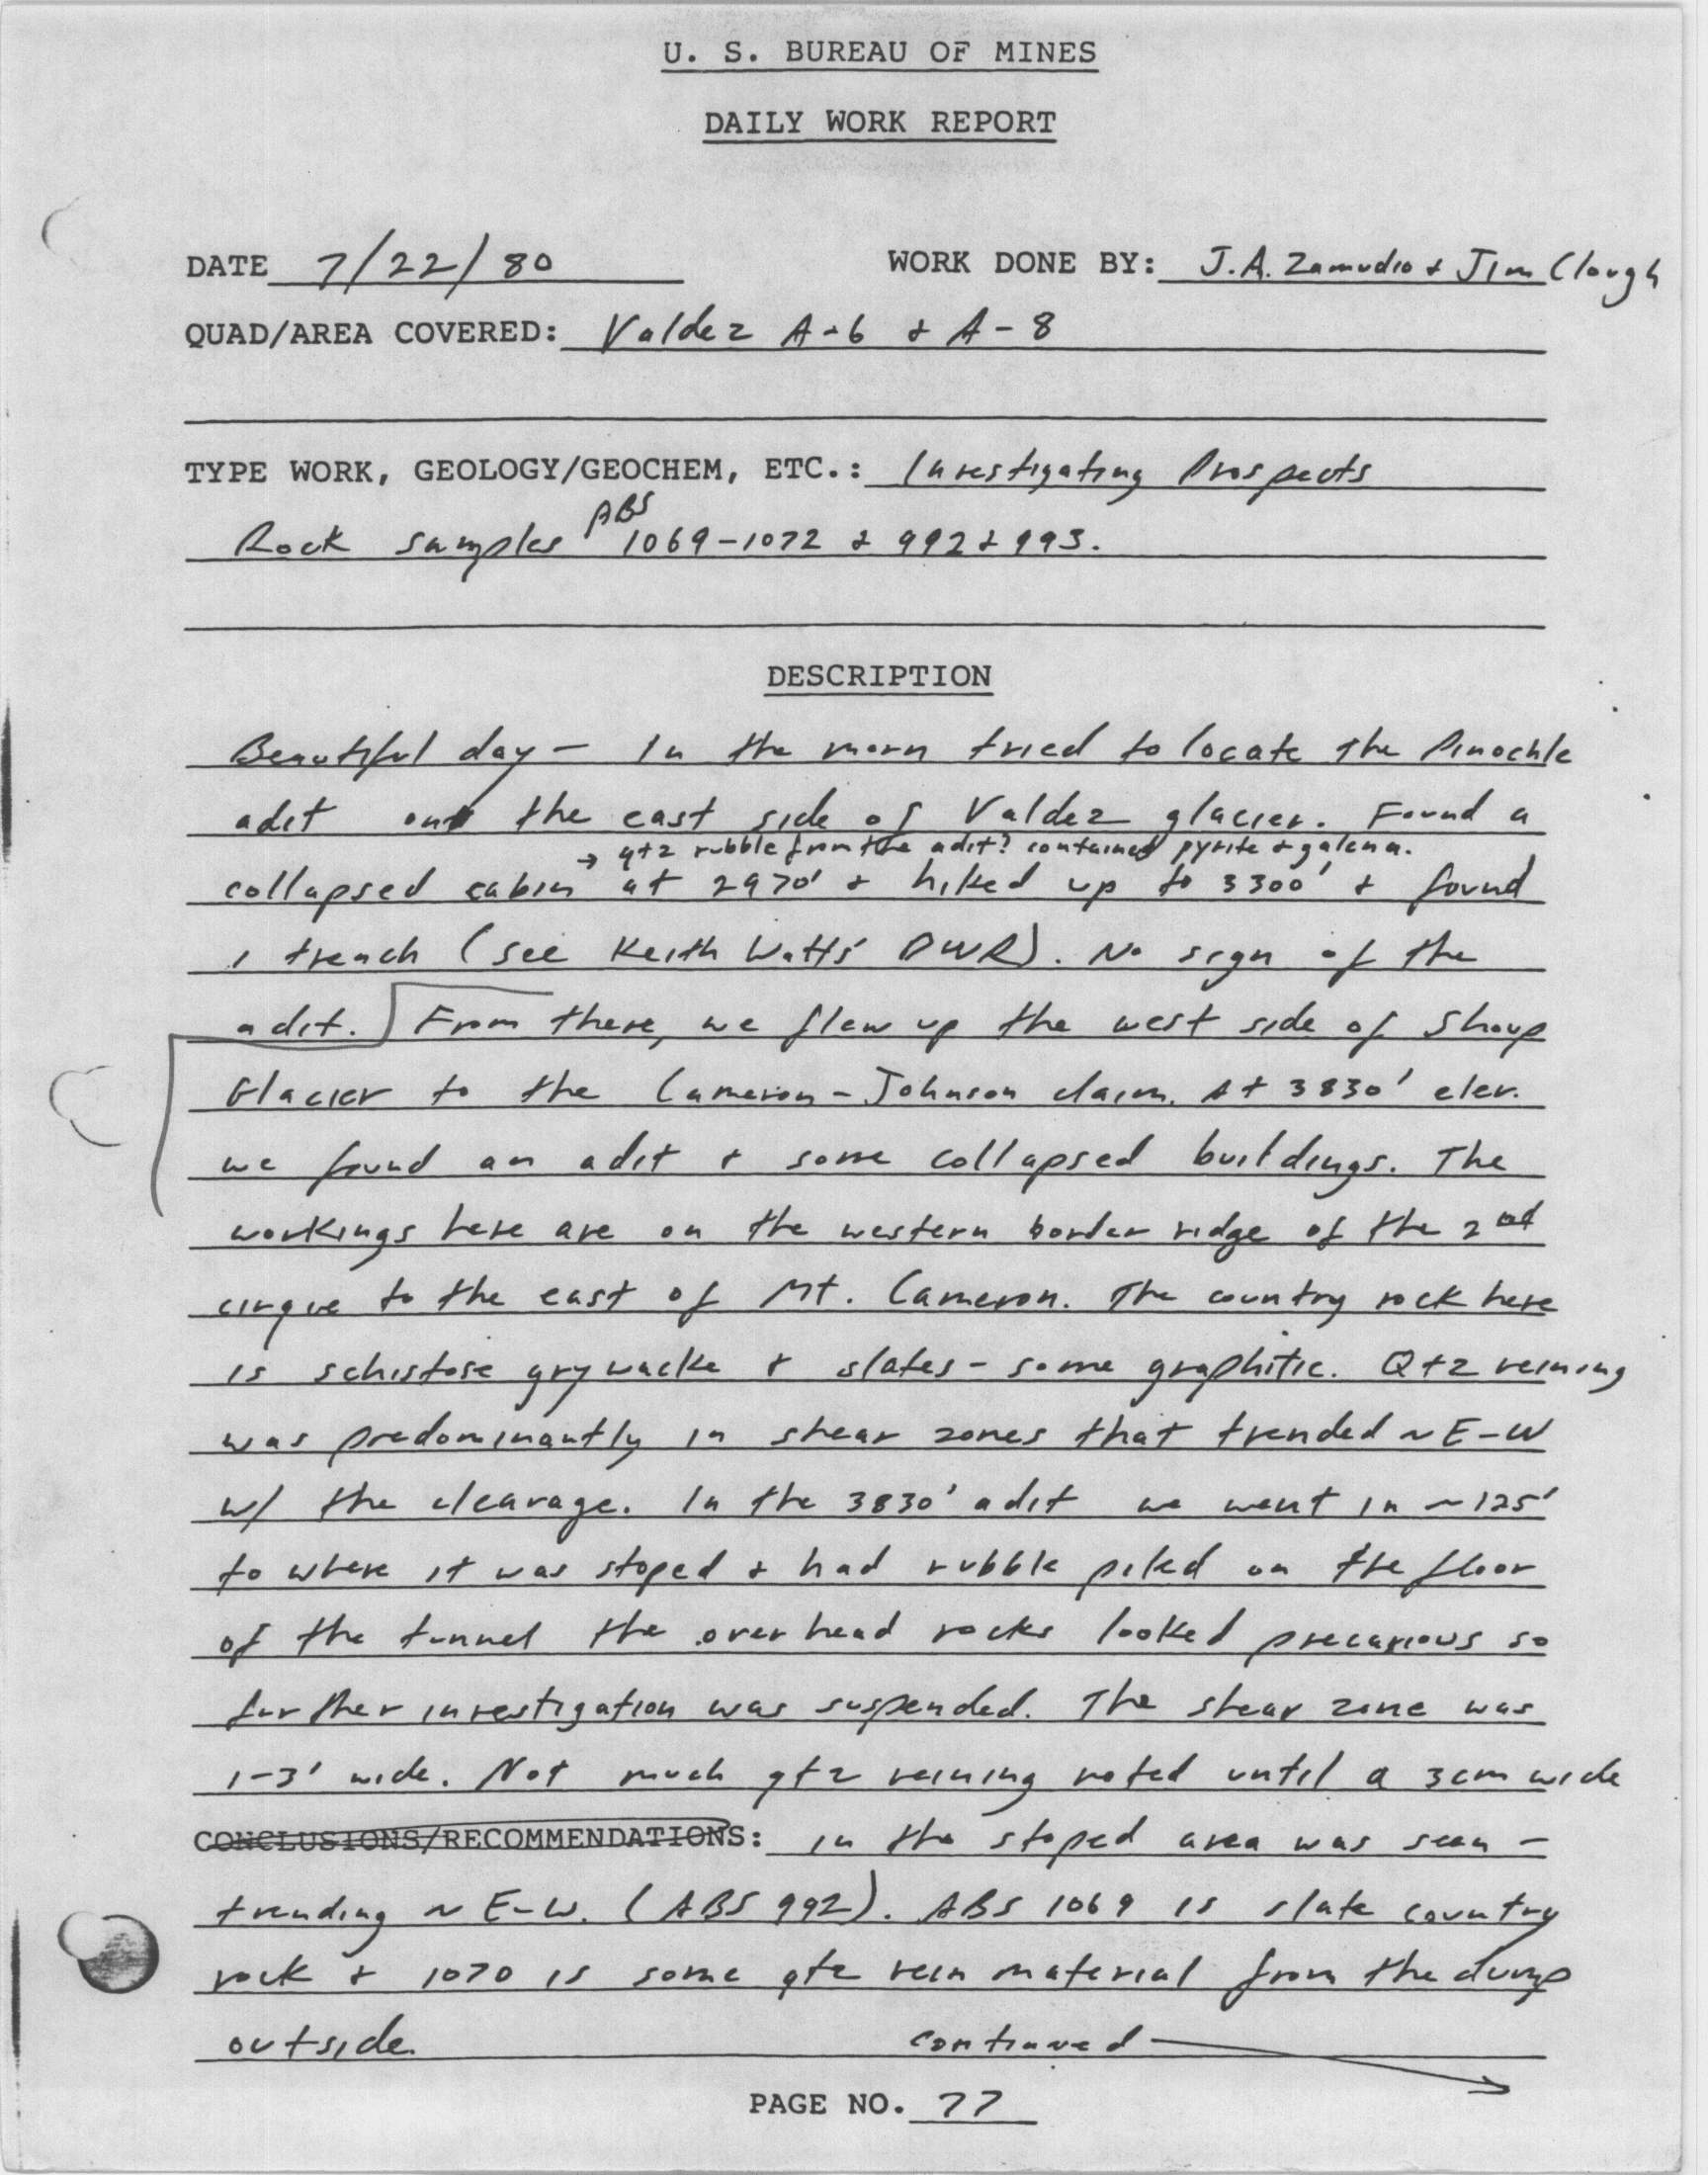 U. S. BUREAU OF MINES
DAILY WORK REPORT
DATE 7/22/80 WORK DONE BY: J.A. Zamudio & Jim Clough
QUAD/AREA COVERED: Valdez A-6 & A-8
TYPE WORK, GEOLOGY/GEOCHEM, ETC.: Investigating Prospects
ABS
Rock samples 1069-1072 & 992 & 993.
DESCRIPTION
Beautiful day - In the morn tried to locate the Pinochle
adit on the east side of Valdez glacier. Found a
→ qtz rubble from the adit? contained pyrite & galena.
collapsed cabin at 2970' & hiked up to 3300' & found
1 trench (see Keith Watts' DWR). No sign of the
adit. From there, we flew up the west side of Shoup
Glacier to the Cameron-Johnson claim. At 3830' elev.
we found an adit & some collapsed buildings. The
workings here are on the western border ridge of the 2nd
cirque to the east of Mt. Cameron. The country rock here
is schistose grywacke & slates - some graphitic. Qtz veining
was predominantly in shear zones that trended ~ E-W
w/ the cleavage. In the 3830' adit we went in ~125'
to where it was stoped & had rubble piled on the floor
of the tunnel the overhead rocks looked precarious so
further investigation was suspended. The shear zone was
1-3' wide. Not much qtz veining noted until a 3cm wide
CONCLUSIONS/RECOMMENDATIONS: in the stoped area was seen -
trending ~ E-W. (ABS 992). ABS 1069 is slate country
rock & 1070 is some qtz vein material from the dump
outside. continued →
PAGE NO. 77